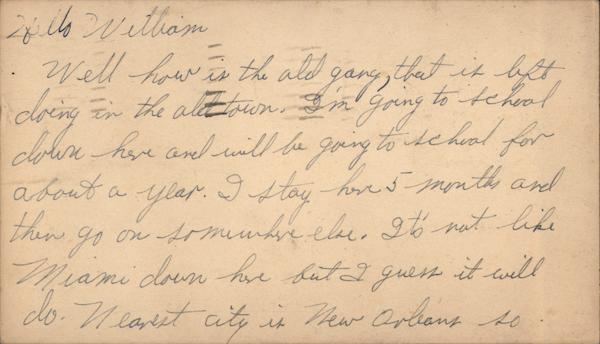 Hello William
Well how is the old gang, that is left
doing in the old town. I'm going to school
down here and will be going to school for
about a year. I stay here 5 months and
then go on somewhere else. It's not like
Miami down here but I guess it will
do. Nearest city is New Orleans so